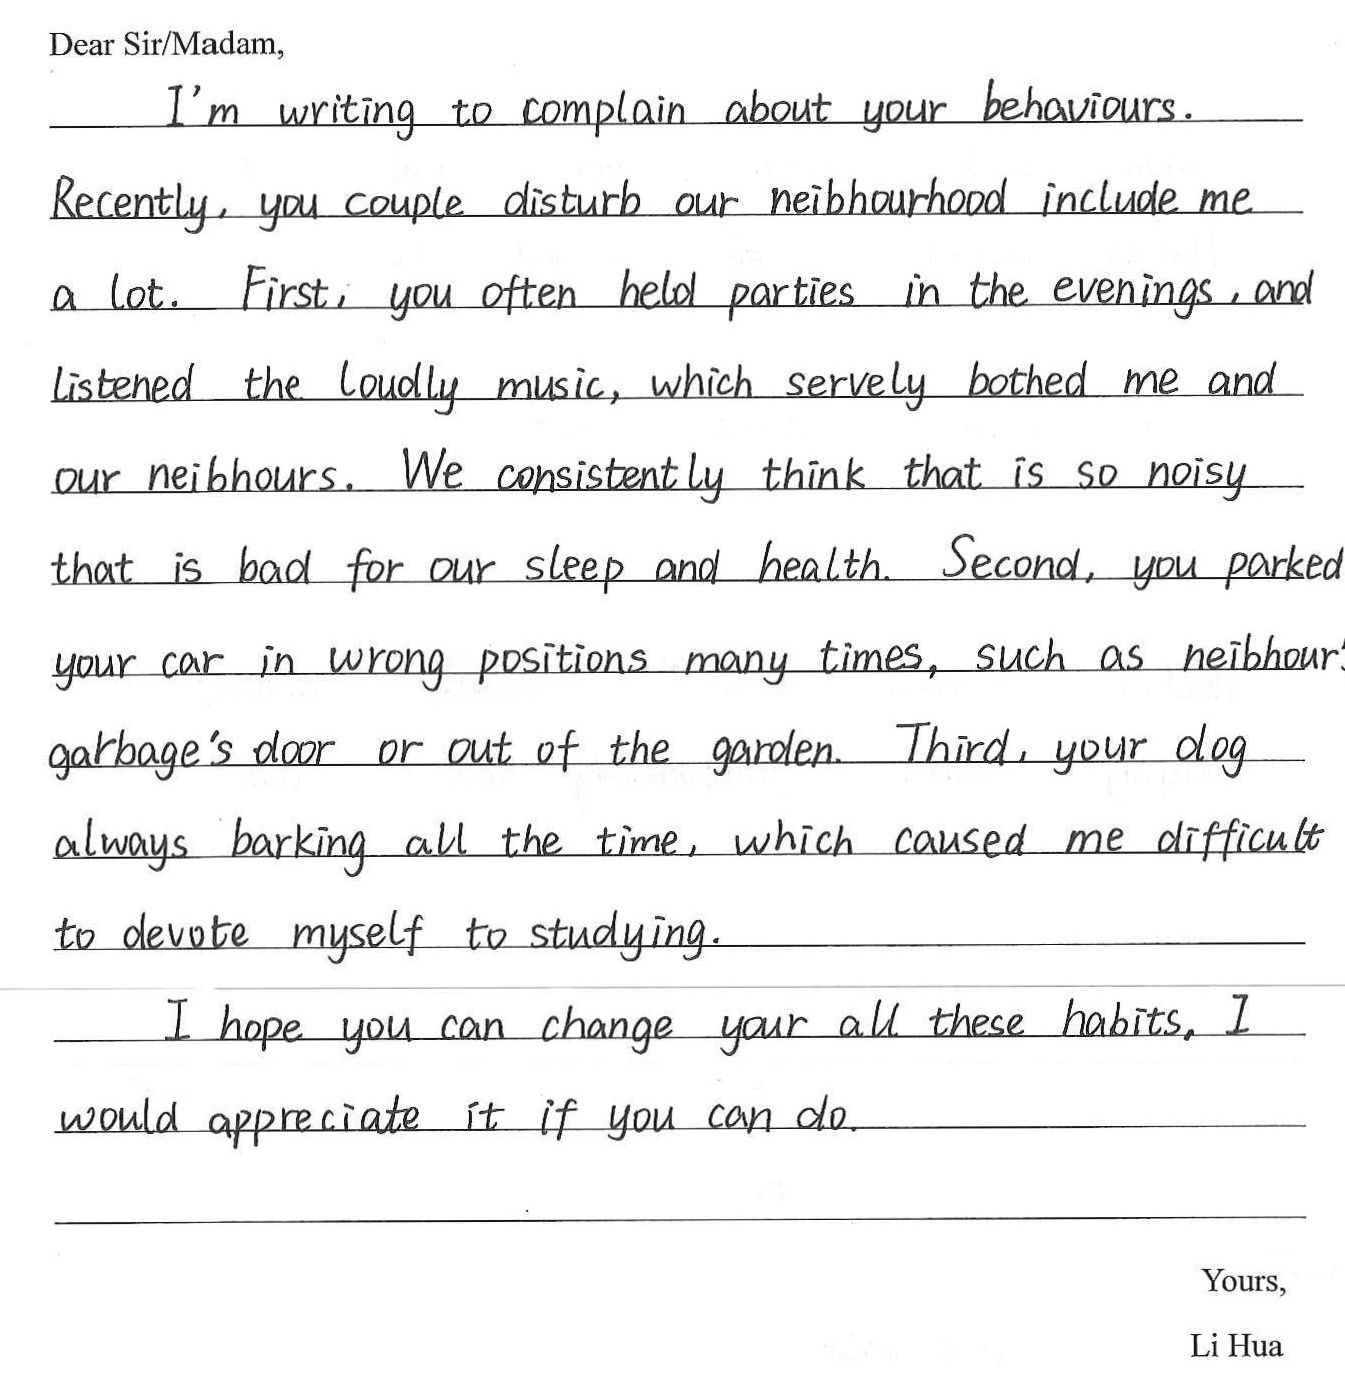 Dear Sir/Madam,
I'm writing to complain about your behaviours.
Recently, you couple disturb our neibhourhood include me
a lot. First, you often held parties in the evenings, and
listened the loudly music, which servely bothed me and
our neibhours. We consistently think that is so noisy
that is bad for our sleep and health. Second, you parked
your car in wrong positions many times, such as neibhour's
garbage's door or out of the garden. Third, your dog
always barking all the time, which caused me difficult
to devote myself to studying.
I hope you can change your all these habits, I
would appreciate it if you can do.
Yours,
Li Hua